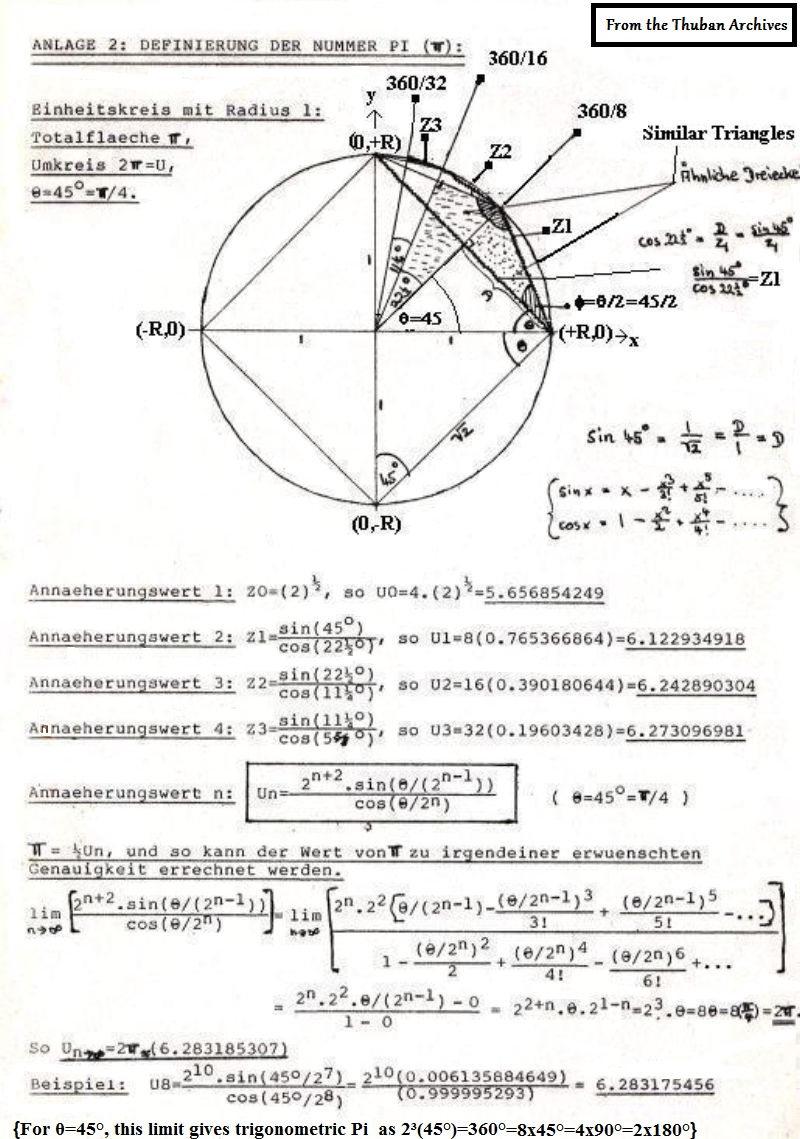 From the Thuban Archives
ANLAGE 2: DEFINIERUNG DER NUMMER PI (π):
360/16
360/32
y
360/8
Einheitskreis mit Radius 1:
Totalflaeche π,
Umkreis 2π=U,
θ=45°=π/4.
(0,+R)
Z3
Z2
Similar Triangles
Ähnliche Dreiecke
Z1
cos 22½° = D/Z₁ = sin 45°/Z₁
sin 45°/cos 22½° = Z1
1
11¼°
22½°
D
ϕ=θ/2=45/2
θ=45
θ
(-R,0)
(+R,0)→x
1
1
θ
1
√2
45°
(0,-R)
Sin 45° = 1/√2 = D/1 = D
{sin x = x - x³/3! + x⁵/5! - ....
cos x = 1 - x²/2 + x⁴/4! - ....}
Annaeherungswert 1: Z0=(2)^½, so U0=4.(2)^½=5.656854249
Annaeherungswert 2: Z1=sin(45°)/cos(22½°), so U1=8(0.765366864)=6.122934918
Annaeherungswert 3: Z2=sin(22½°)/cos(11¼°), so U2=16(0.390180644)=6.242890304
Annaeherungswert 4: Z3=sin(11¼°)/cos(5⅝°), so U3=32(0.19603428)=6.273096981
Annaeherungswert n: Un=2^(n+2).sin(θ/(2^(n-1)))/cos(θ/2^n) ( θ=45°=π/4 )
π= ½Un, und so kann der Wert von π zu irgendeiner erwuenschten
Genauigkeit errechnet werden.
lim n→∞ [2^(n+2).sin(θ/(2^(n-1)))/cos(θ/2^n)] = lim n→∞ [2^n.2²(θ/(2^(n-1))-(θ/2^(n-1))³/3! + (θ/2^(n-1))⁵/5! -...)/1-(θ/2^n)²/2+(θ/2^n)⁴/4!-(θ/2^n)⁶/6!+...]
= 2^n.2².θ/(2^(n-1)) - 0/1 - 0 = 2^(2+n).θ.2^(1-n)=2³.θ=8θ=8(π/4)=2π.
So Un→∞=2π≈(6.283185307)
Beispiel: U8=2^10.sin(45°/2^7)/cos(45°/2^8)=2^10(0.006135884649)/(0.999995293) = 6.283175456
{For θ=45°, this limit gives trigonometric Pi as 2³(45°)=360°=8x45°=4x90°=2x180°}